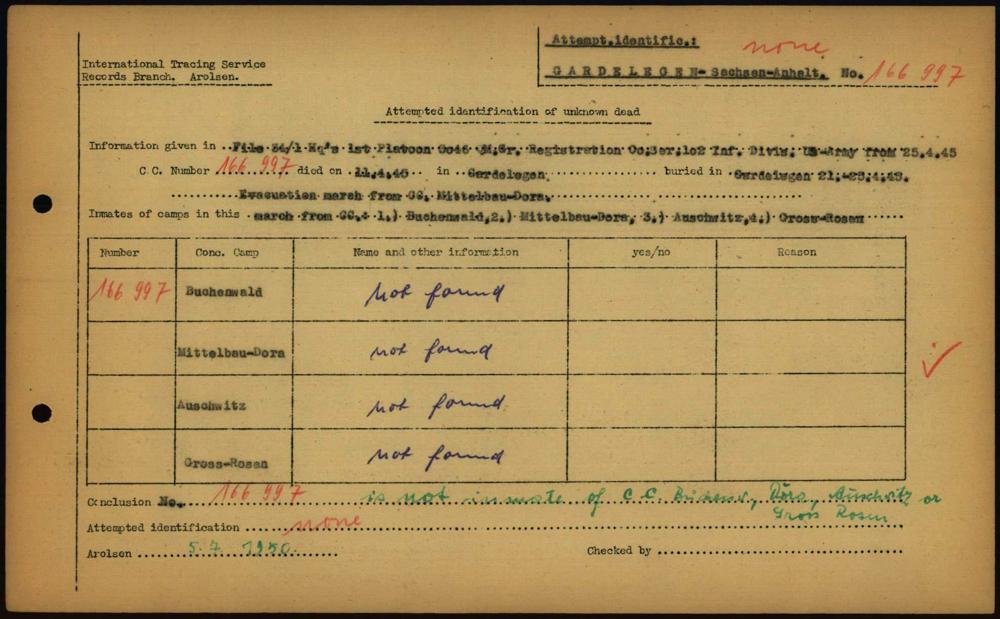 Attempt.identific.: none
International Tracing Service
Records Branch. Arolsen.
GARDELEGEN- Sachsen-Anhalt. No. 166 997
Attempted identification of unknown dead
Information given in ..File 34/1 Hq's 1st Platoon 3046 Registration Inf. Divis. US-Army from 25.4.45
C.C. Number 166 997 died on .11.4.45 in Gardelegen buried in Gardelegen
Evacuation march from CC. Mittelbau-Dora.
Inmates of camps in this .march from CC.: 1.) Buchenwald,2.) Mittelbau-Dora, 3.) Auschwitz,4.) Gross-Rosen
Number Conc. Camp Name and other information yes/no Reason
166 997 Buchenwald not found
Mittelbau-Dora not found
Auschwitz not found
Gross-Rosen not found
Conclusion No. 166 997 is not inmate of C.C. Buchenw, Dora, Auschwitz or
Gross Rosen
Attempted identification none
Arolsen 5.7 1950. Checked by